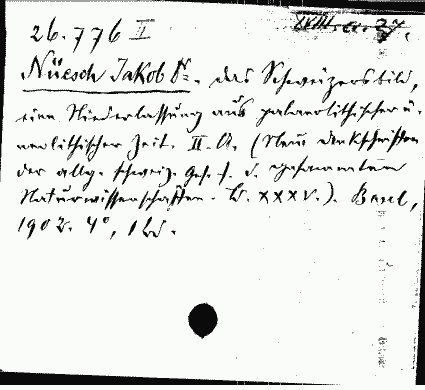 26.776 I
Nüesch Jakob Dr. das Schweizersbild,
eine Niederlassung aus palaeolithischer u.
neolithischer Zeit. II. A. (Neue Denkschriften
der allg. schweiz. Ges. f. d. gesammten
Naturwissenschaften. B. XXXV.). Basel,
1902. 4°, 1 Bd.